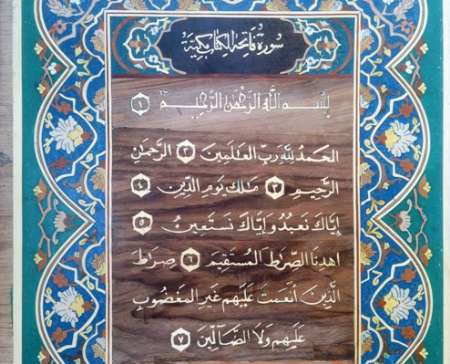 سورة فاتحة الكتاب مكية
بسم الله الرحمن الرحيم ۱
الحمد لله رب العالمين ۲ الرحمن
الرحيم ۳ مالك يوم الدين ٤
إياك نعبد وإياك نستعين ۵
اهدنا الصراط المستقيم ٦ صراط
الذين أنعمت عليهم غير المغضوب
عليهم ولا الضآلين ۷